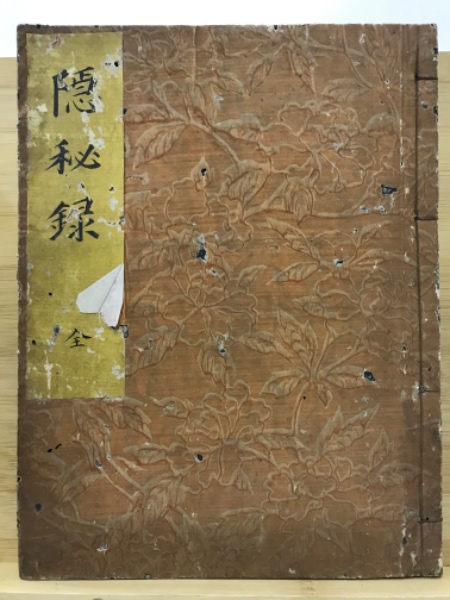 隠秘録
全